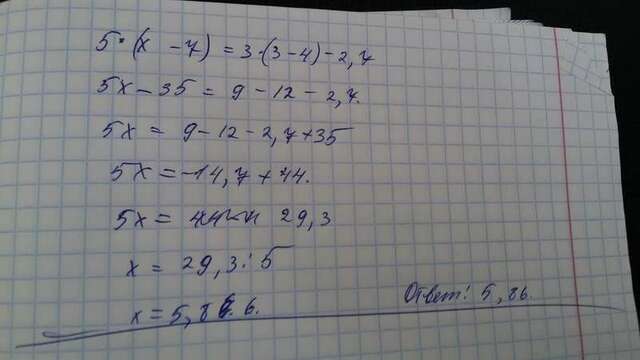 5·(x - 7) = 3·(3-4) - 2,7
5x - 35 = 9 - 12 - 2,7.
5x = 9 - 12 - 2,7 + 35
5x = -14,7 + 44.
5x = 29,3
x = 29,3 : 5
x = 5,86.
Ответ: 5,86.